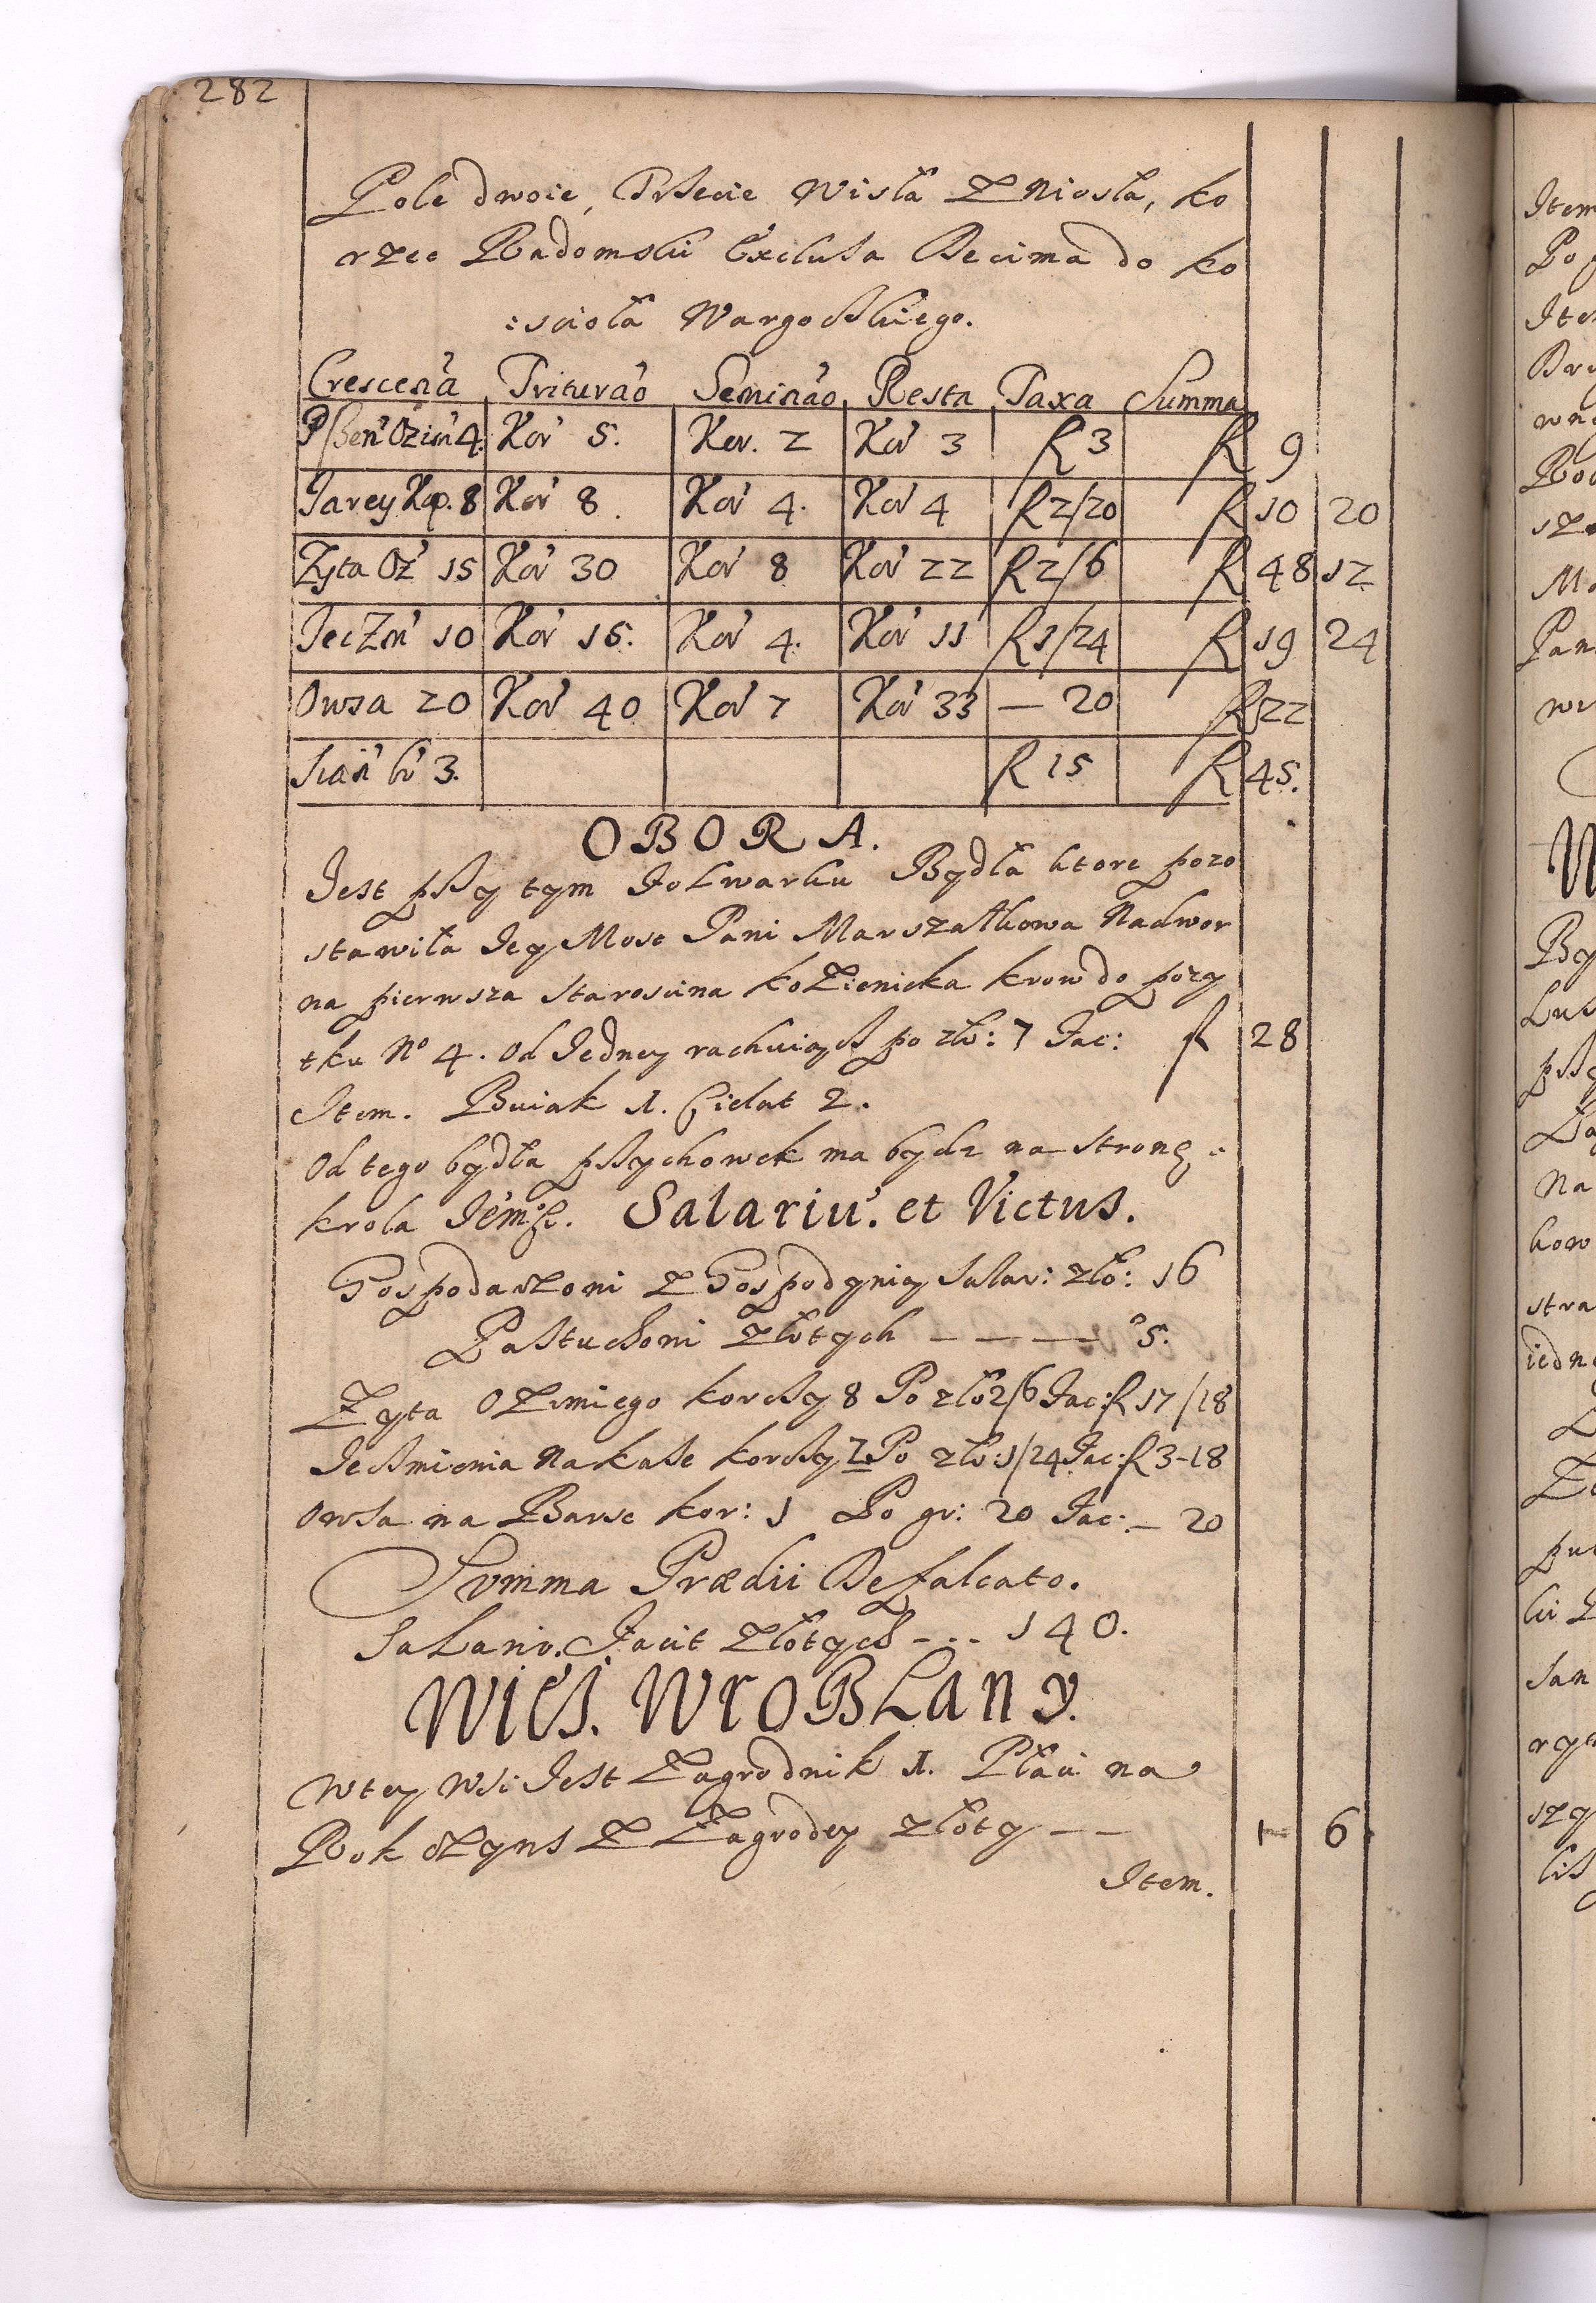 282
Pole dwoie, Trzecie Wisła Zniosła, ko
rzec Radomski Exclusa Decima do ko
:scioła Wargockiego.
Crescen'a Triturao' Seminao' Resta Taxa Summa
Pszen' Ozim' 4. Kor' 5. Kor. 2 Kor' 3 f 3 f 9
Jarey Kop. 8 Kor' 8. Kor' 4. Kor' 4 f 2/20 f 10 20
Zyta Oz' 15 Kor' 30 Kor' 8 Kor' 22 f 2/6 f 48 12
JecZm' 10 Kor' 15. Kor' 4. Kor' 11 f 1/24 f 19 24
Owsa 20 Kor' 40 Kor' 7 Kor' 33 — 20 f 22
Sian' 3. f 15 f 45.
OBORA.
Jest przy tym Folwarku Bydła ktore pozo
stawiła Jey Mosc Pani Marszałkowa Nadwor
na pierwsza Staroscina koZienicka krow do pozy
tku No 4. od Jedney rachuiąc po zło: 7 Fac: f 28
Item. Buiak 1. Cielat 2.
Od tego bydła przychowek ma bydz na stronę
krola Jem:sc. Salariu'. et Victus.
Gospodarzowi Z Gospodynią Salar: zło: 16
Pastuchowi Złotych — — — — 5.
Zyta OZimiego korczy 8 Po zło 2/6 Fac: f 17/18
Jeczmienia Na kasze korczy 2 Po zło: 1/24 Fac: f 3-18
Owsa na Barsc kor: 1 Po gr: 20 Fac: — 20
Summa Prædii Defalcato.
Salario. Facit Złotych - - - 140.
WIES. WROBLANY.
Wtey Wsi Jest Zagrodnik 1. Płaci na
Rok Czyns Z Zagrodey złoty — — 1 6
Item.